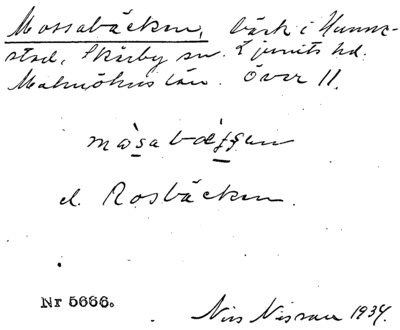 Mossabäcken, bäck i Hunne-
stad, Skårby sn. Ljunits hd.
Malmöhus län. Över 11.
måsabæḱꞩen
el. Rosbäcken.
Nr 5666.
Nils Nilsson 1934.